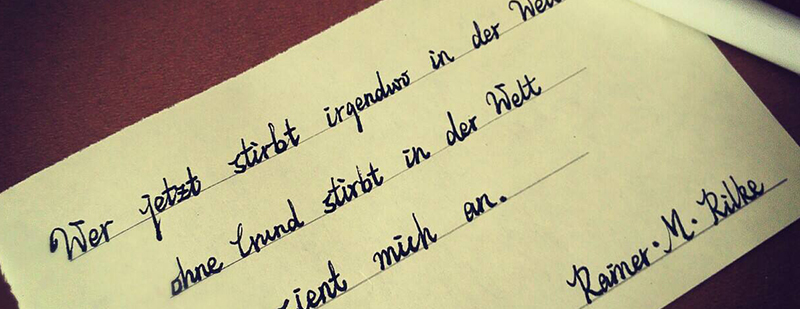 Wer jetzt stirbt irgendwo in der Welt
ohne Grund stirbt in der Welt
mich an.
Rainer. M. Rilke